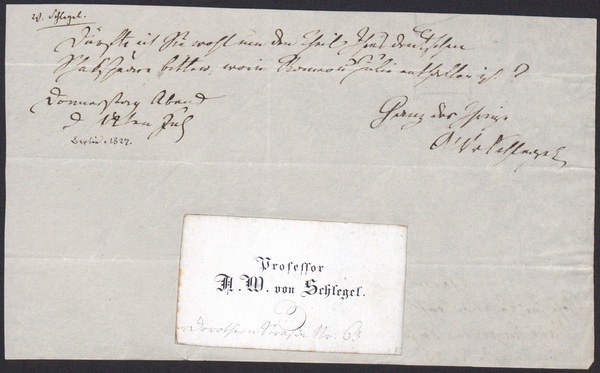 W. Schlegel.
Dürfte ich Sie wohl um den Theil Ihres deutschen
Shakspeare bitten, worin Romeo u Julie enthalten ist?
Donnerstag Abend
d 12ten Jul
Berlin. 1827.
Ganz der Ihrige
AW v Schlegel
Professor
A. W. von Schlegel.
Dorotheen Straße Nr. 63